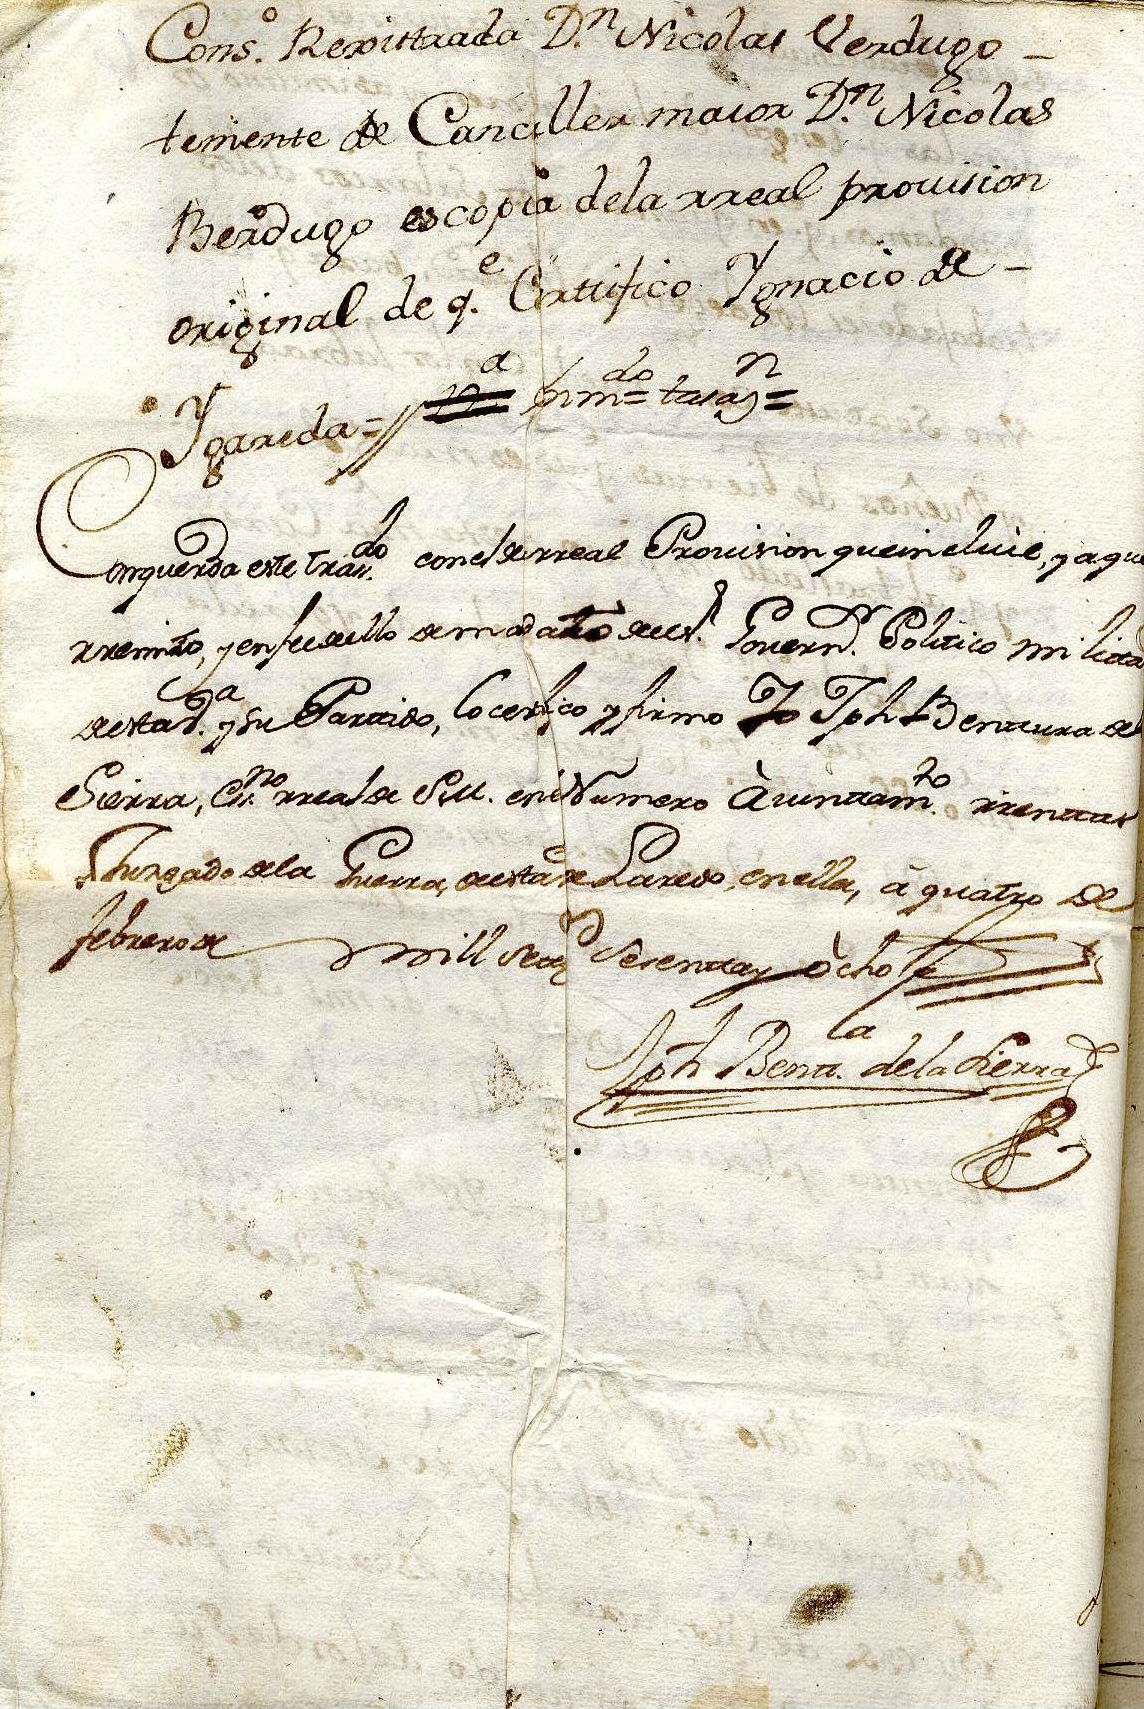 Cons.º Rexistrada D.n Nicolas Verdugo
teniente de Canciller maior D.n Nicolas
Berdugo es copia dela rreal provision
original de q.e Certifico Ygnacio de
Ygareda =
Conquerda este tras.do con el de rreal Provision que incluie, y a que
rremito, y en fee de ello de mandato de el s.r Govern.r Politico militar
de esta v.a y su Partido, lo certifico y firmo Yo Jph Bentura de
Sierra, Es.no rreal de S.M. en el Numero Aiuntam.to rrentas
Juzgado de la Guerra, de esta de Laredo, en ella, à quatro de
febrero de mill setez.s sesenta y ocho
Jph Bent.a de la Sierra